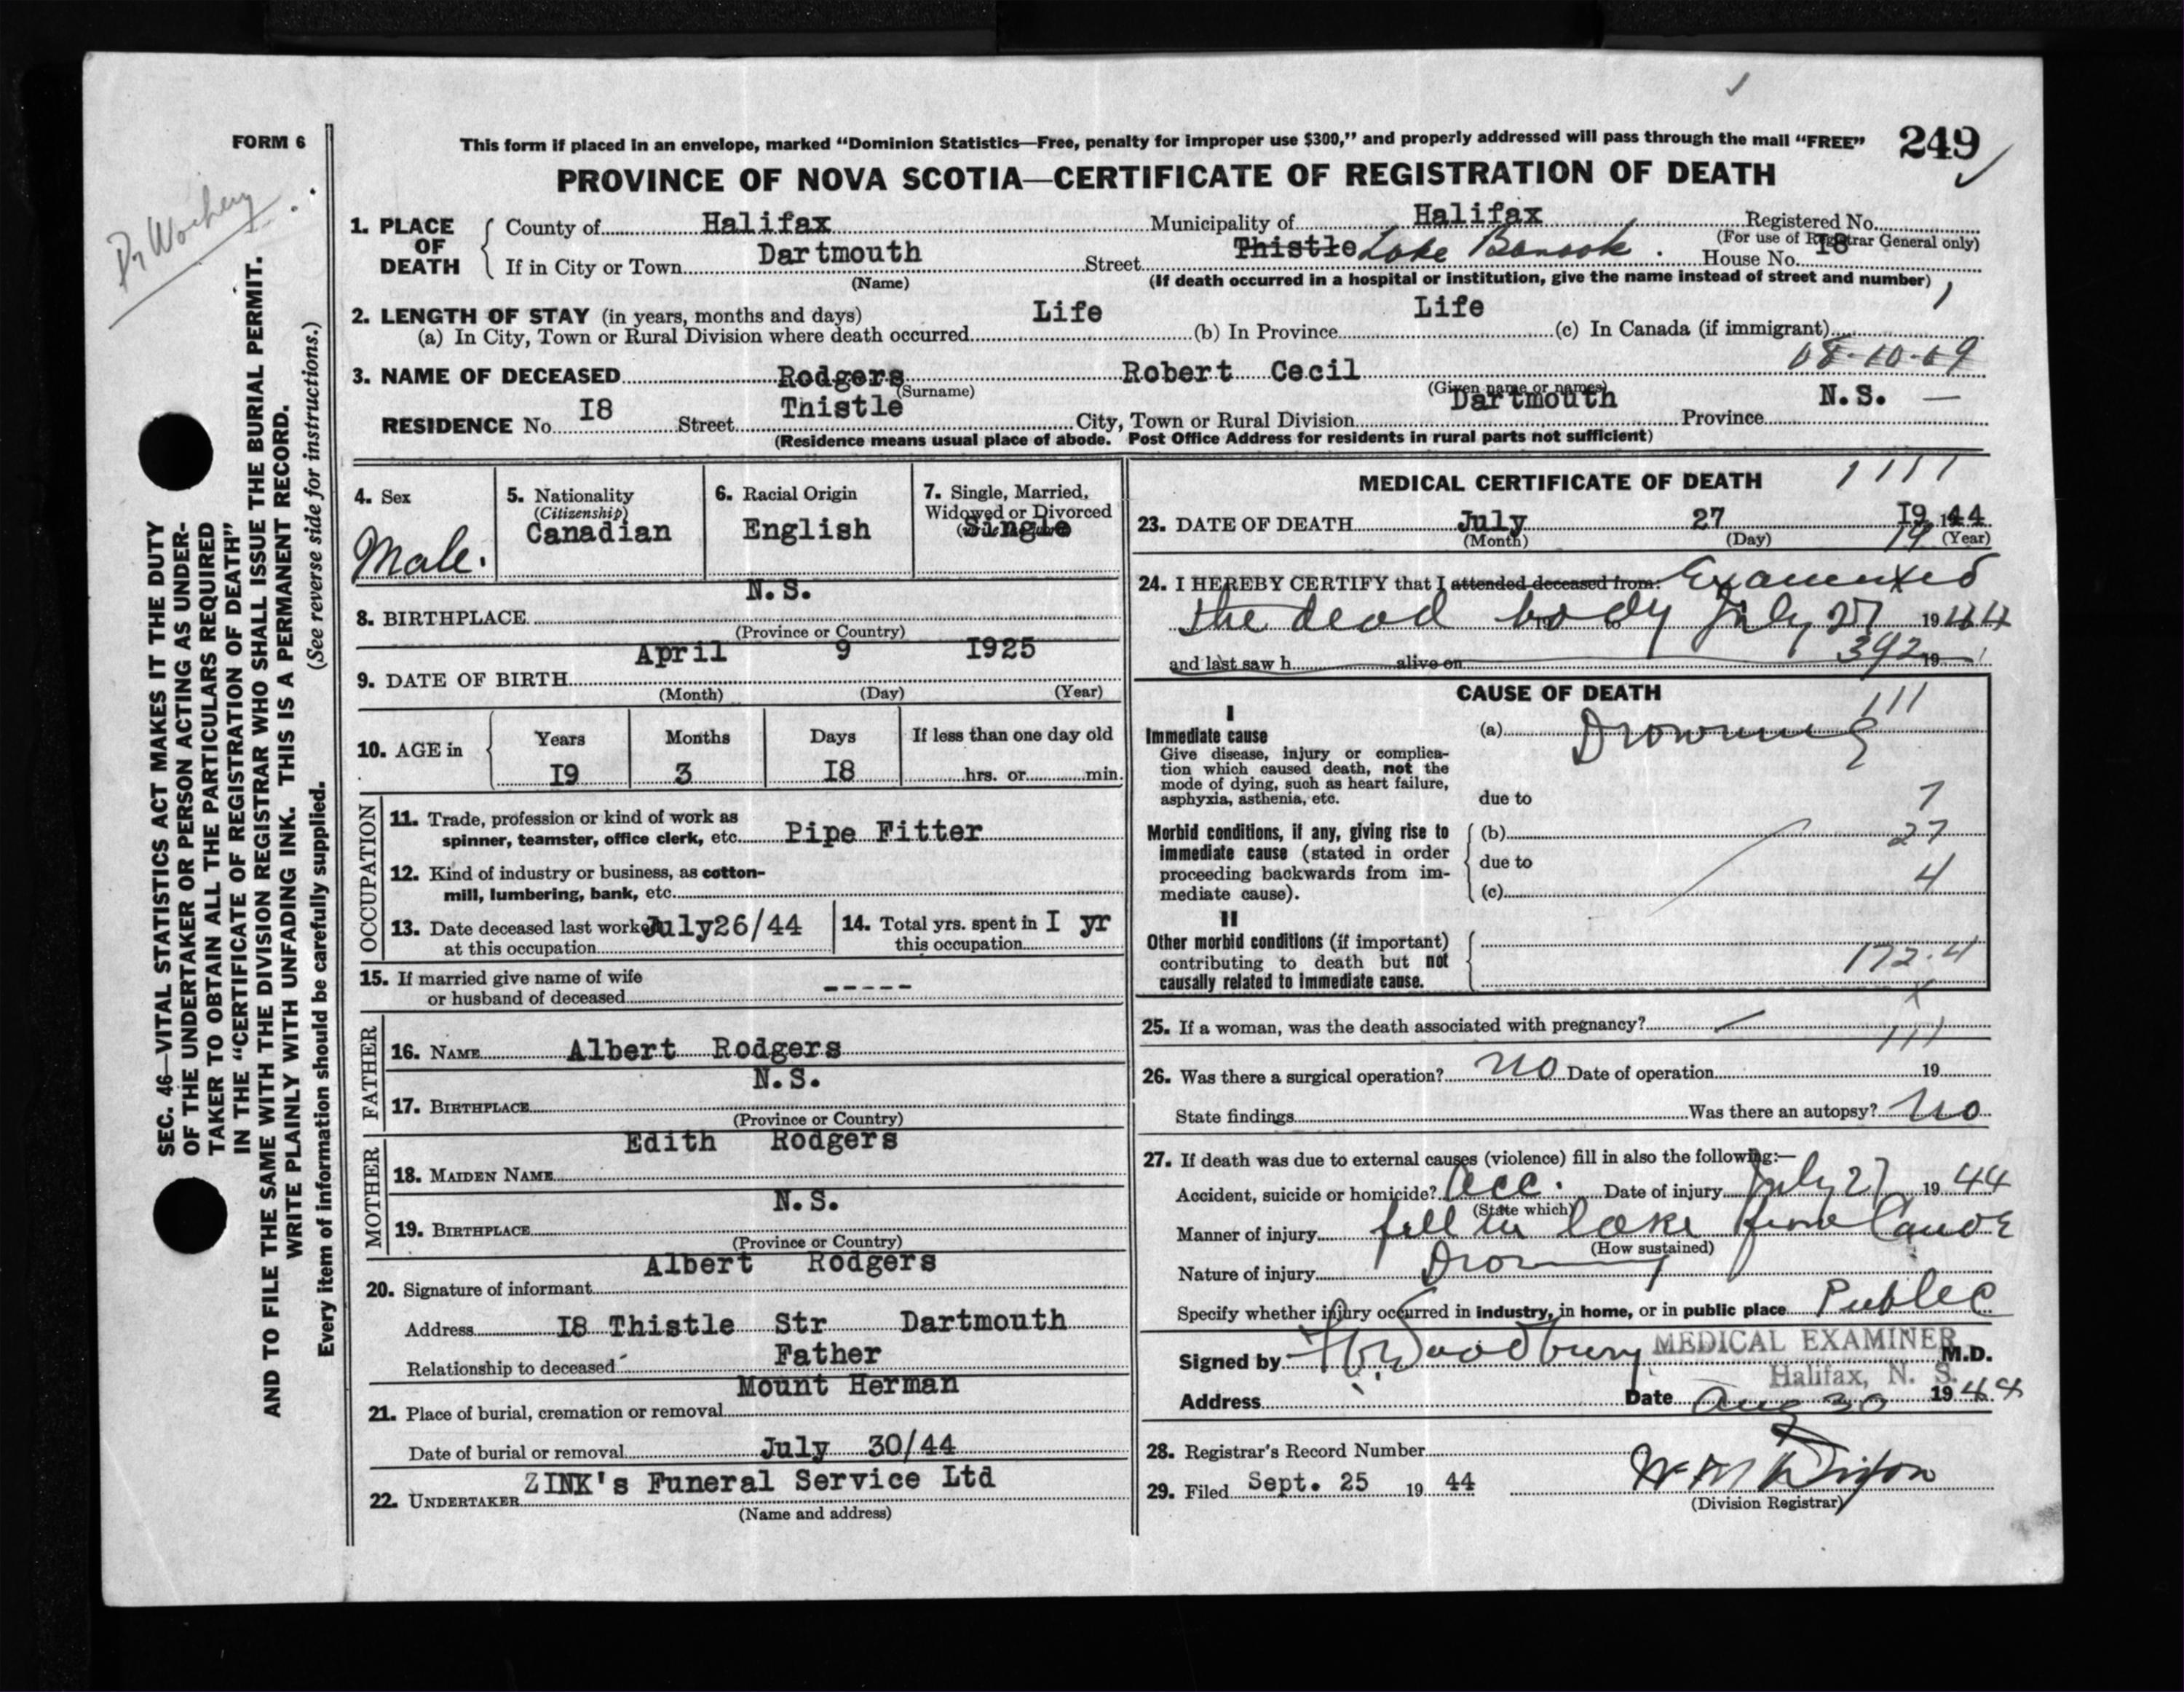 FORM 6
This form if placed in an envelope, marked "Dominion Statistics—Free, penalty for improper use $300," and properly addressed will pass through the mail "FREE" 249
PROVINCE OF NOVA SCOTIA—CERTIFICATE OF REGISTRATION OF DEATH
1. PLACE OF DEATH
County of Halifax Municipality of Halifax Registered No.
(For use of Registrar General only)
If in City or Town Dartmouth Street Thistle Lake Banook. House No. I8
(Name) (If death occurred in a hospital or institution, give the name instead of street and number)
2. LENGTH OF STAY (in years, months and days)
(a) In City, Town or Rural Division where death occurred Life (b) In Province Life (c) In Canada (if immigrant)
08-10-09
3. NAME OF DECEASED Rodgers Robert Cecil
(Surname) (Given name or names)
RESIDENCE No. I8 Street Thistle City, Town or Rural Division Dartmouth Province N.S. —
(Residence means usual place of abode. Post Office Address for residents in rural parts not sufficient)
4. Sex Male.
5. Nationality (Citizenship) Canadian
6. Racial Origin English
7. Single, Married, Widowed or Divorced Single
8. BIRTHPLACE N.S.
(Province or Country)
9. DATE OF BIRTH April 9 I925
(Month) (Day) (Year)
10. AGE in Years I9 Months 3 Days I8 If less than one day old hrs. or min.
OCCUPATION
11. Trade, profession or kind of work as
spinner, teamster, office clerk, etc. Pipe Fitter
12. Kind of industry or business, as cotton-
mill, lumbering, bank, etc.
13. Date deceased last worked July26/44
at this occupation
14. Total yrs. spent in I yr
this occupation
15. If married give name of wife
or husband of deceased -----
FATHER
16. NAME Albert Rodgers
17. BIRTHPLACE N.S.
(Province or Country)
MOTHER
18. MAIDEN NAME Edith Rodgers
19. BIRTHPLACE N.S.
(Province or Country)
20. Signature of informant Albert Rodgers
Address I8 Thistle Str Dartmouth
Relationship to deceased Father
21. Place of burial, cremation or removal Mount Herman
Date of burial or removal July 30/44
22. UNDERTAKER ZINK's Funeral Service Ltd
(Name and address)
MEDICAL CERTIFICATE OF DEATH 1111
23. DATE OF DEATH July 27 I9 1944
(Month) (Day) (Year)
19
24. I HEREBY CERTIFY that I attended deceased from: Examined
the dead body July 27 1944
and last saw h alive on 392 19
CAUSE OF DEATH
111
I
Immediate cause
Give disease, injury or complica-
tion which caused death, not the
mode of dying, such as heart failure,
asphyxia, asthenia, etc.
(a) Drowning
due to 7
Morbid conditions, if any, giving rise to
immediate cause (stated in order
proceeding backwards from im-
mediate cause).
(b) 27
due to 4
(c)
II
Other morbid conditions (if important)
contributing to death but not
causally related to immediate cause.
172.4
x
25. If a woman, was the death associated with pregnancy?
111
26. Was there a surgical operation? No Date of operation 19
State findings Was there an autopsy? No
27. If death was due to external causes (violence) fill in also the following:—
Accident, suicide or homicide? Acc. Date of injury July 27 1944
(State which)
Manner of injury fell in lake from Canoe
(How sustained)
Nature of injury Drowning
Specify whether injury occurred in industry, in home, or in public place Public
Signed by Woodbury MEDICAL EXAMINER M.D.
Halifax, N. S.
Address Date Aug 30 1944
28. Registrar's Record Number
29. Filed Sept. 25 19 44 W M Dixon
(Division Registrar)
SEC. 46—VITAL STATISTICS ACT MAKES IT THE DUTY
OF THE UNDERTAKER OR PERSON ACTING AS UNDER-
TAKER TO OBTAIN ALL THE PARTICULARS REQUIRED
IN THE "CERTIFICATE OF REGISTRATION OF DEATH"
AND TO FILE THE SAME WITH THE DIVISION REGISTRAR WHO SHALL ISSUE THE BURIAL PERMIT.
WRITE PLAINLY WITH UNFADING INK. THIS IS A PERMANENT RECORD.
Every item of information should be carefully supplied. (See reverse side for instructions.)